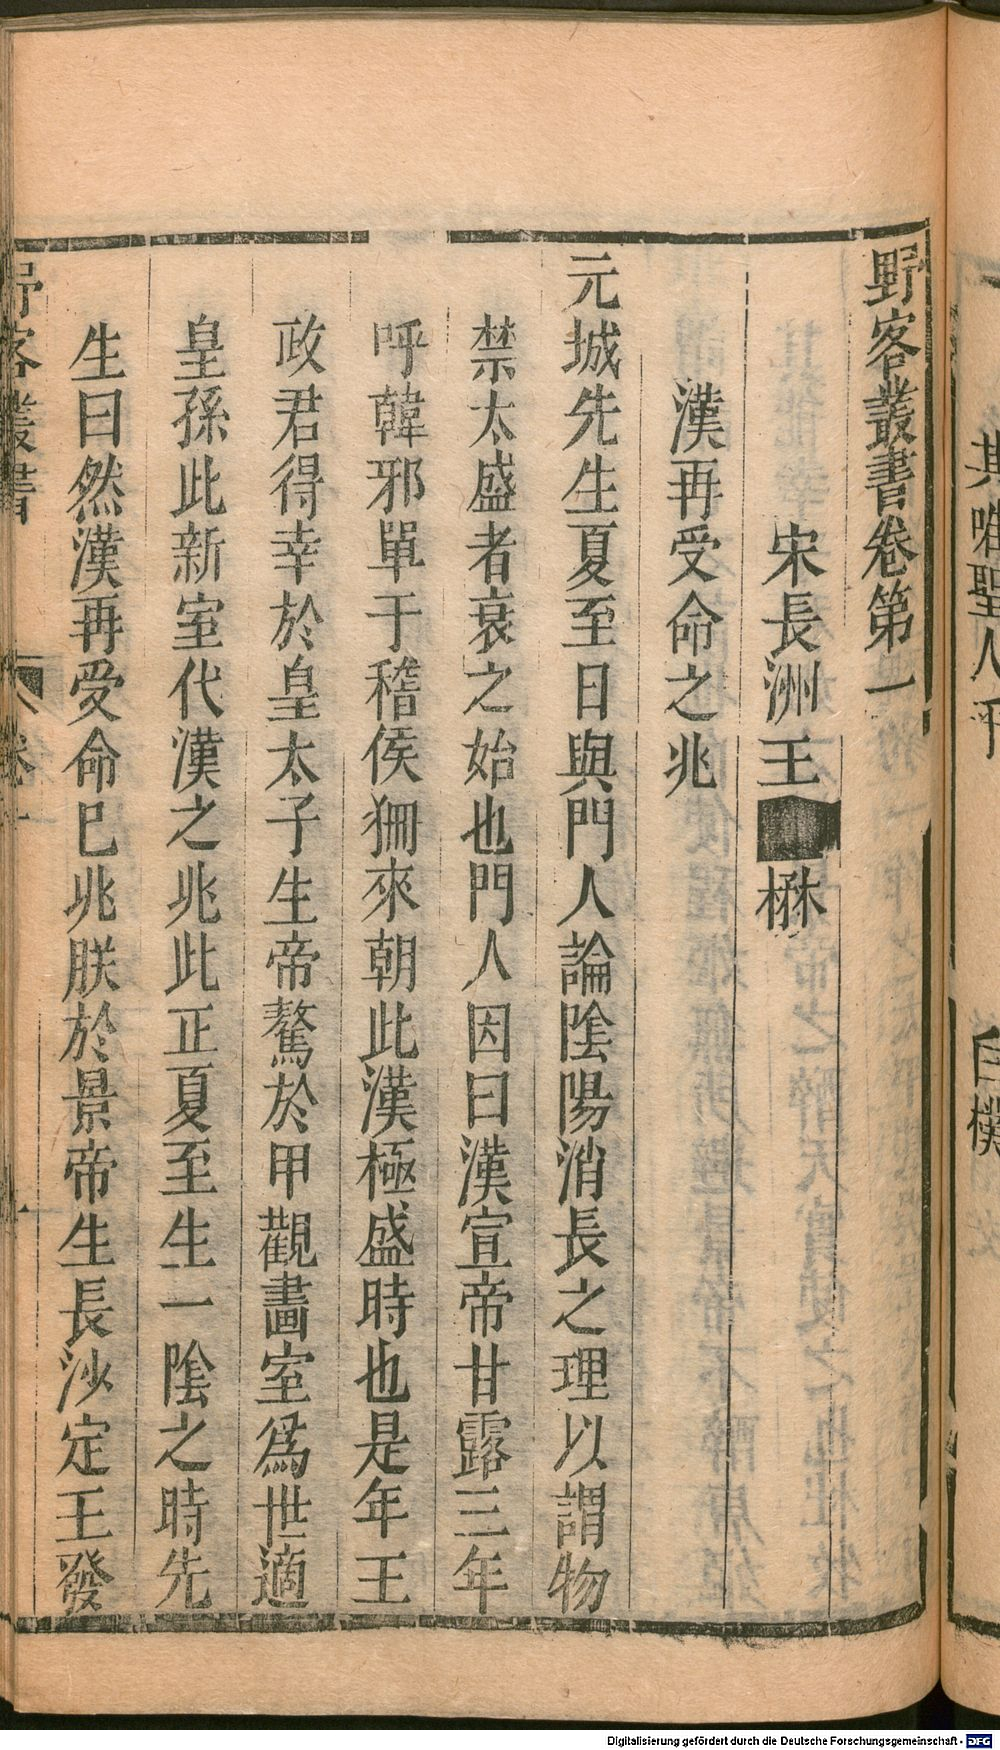 其唯聖人乎　自樸
野客叢書卷第一
宋長洲王　楙
漢再受命之兆
元城先生夏至日與門人論隂陽消長之理以謂物
禁太盛者衰之始也門人因曰漢宣帝甘露三年
呼韓邪單于稽侯狦來朝此漢極盛時也是年王
政君得幸於皇太子生帝驁於甲觀畫室爲世適
皇孫此新室代漢之兆此正夏至生一隂之時先
生曰然漢再受命已兆朕於景帝生長沙定王發
野客叢書　卷一　一
Digitalisierung gefördert durch die Deutsche Forschungsgemeinschaft - DFG